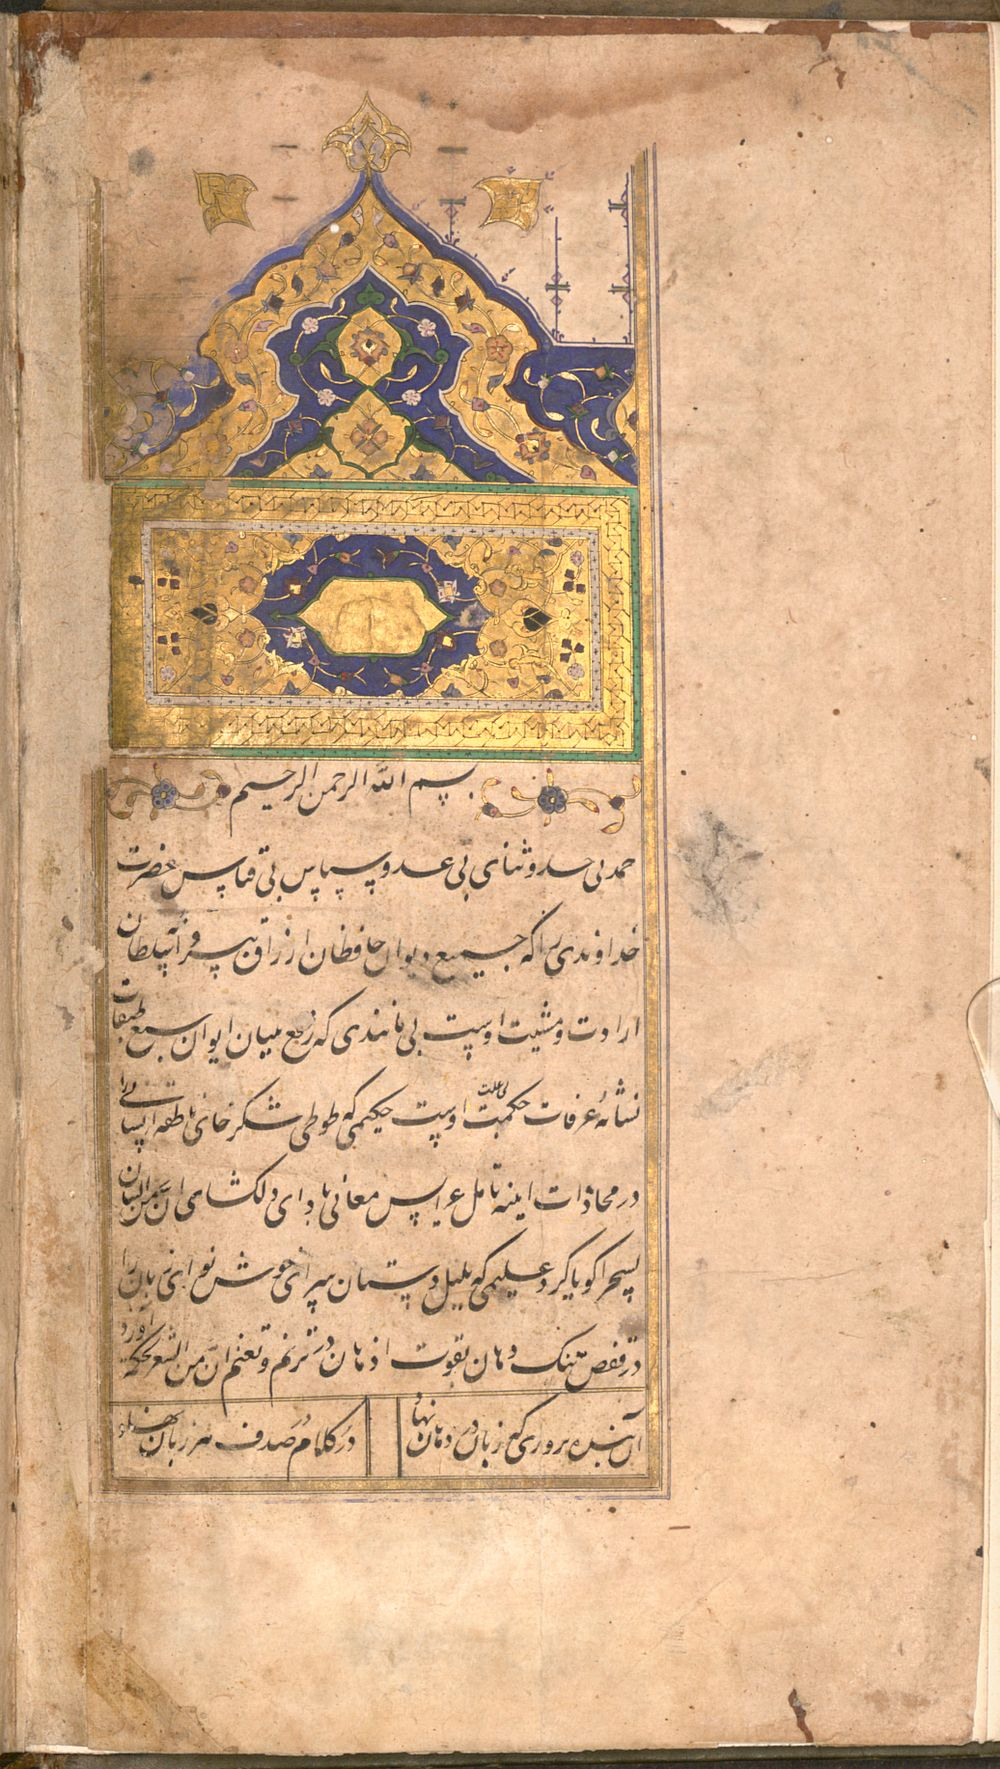 بسم الله الرحمن الرحیم
حمد بی حد و ثنای بی عد و سپاس بی قیاس حضرت
خداوندی را که جمیع دیوان حافظان ارزاق بپروانهٔ سلطان
ارادت و مشیت اوست بی مانندی که رفع میان ایوان سبع طباق
نشانهٔ عرفات حکمت بی علت اوست حکیمی که طوطی شکرخای ناطقه انسانی را
در محاذات اینه تامل عرایس معانی بادای دلکشای ان من البیان
لسحرا کویا کرد علیمی که بلبل دستان سرای خوش نوای زبان را
در قفص تنک دهان بقوت اذهان در ترنم و تغنم ان من الشعر لحکمة آورد
آن بنده پروری که زبان در دهان نهاد
در کلام صدف هر زبان نهاد